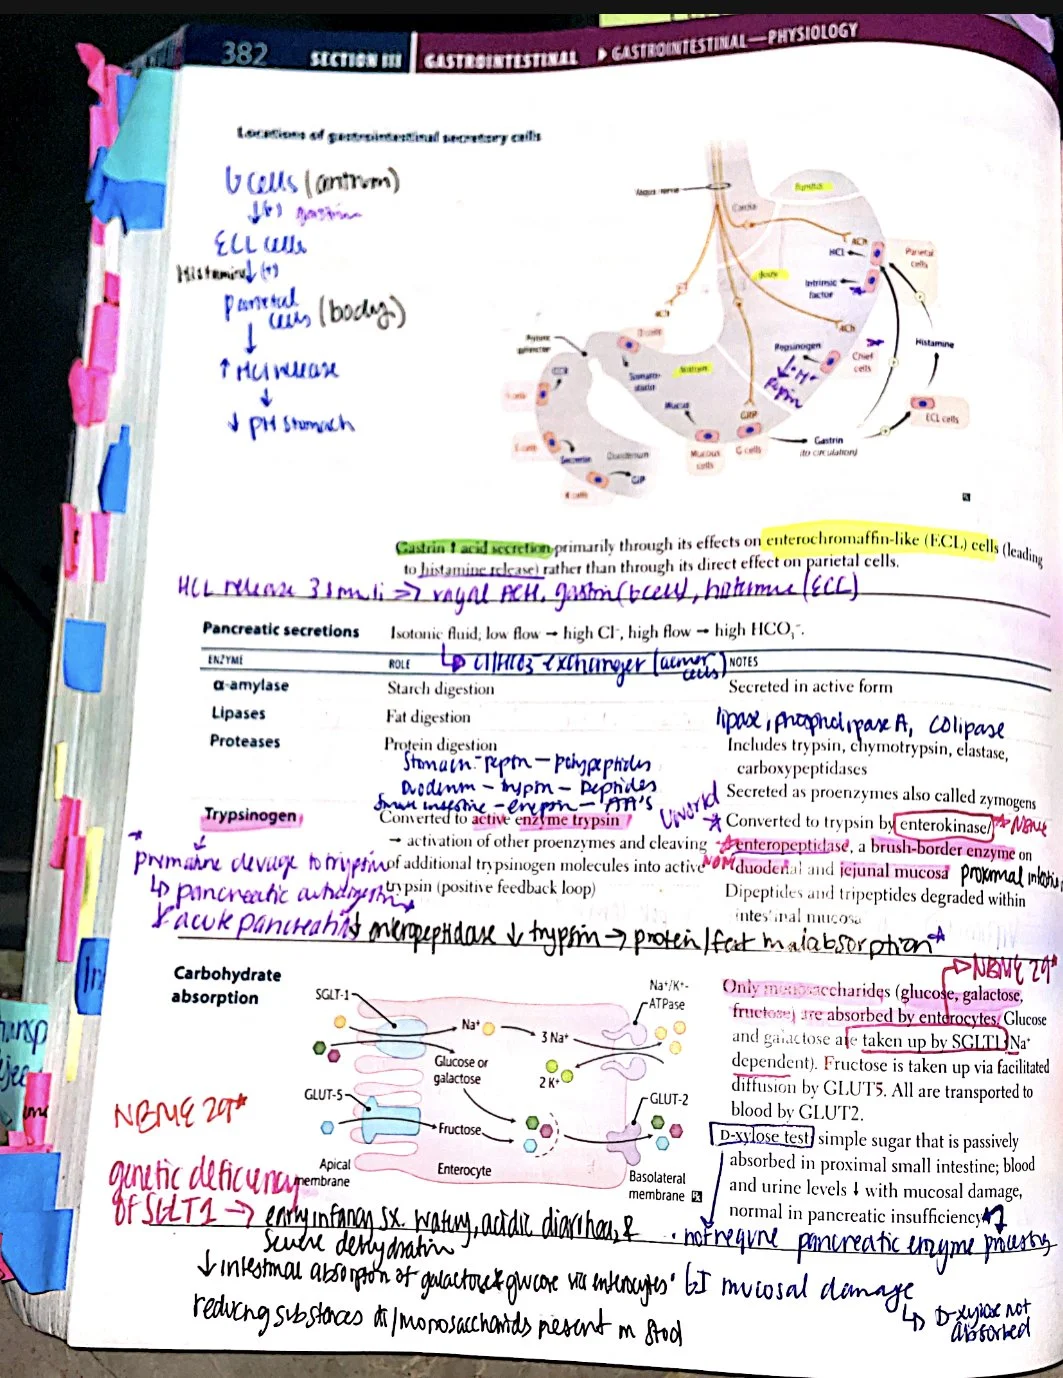 382 SECTION III GASTROINTESTINAL ▶ GASTROINTESTINAL—PHYSIOLOGY
Locations of gastrointestinal secretory cells
G cells (antrum)
↓(+) gastrin
ECL cells
Histamine ↓ (+)
Parietal cells (body)
↓
↑ HCl release
↓
↓ pH stomach
Vagus nerve
Fundus
Cardia
ACh
HCl
Parietal cells
Body
Intrinsic factor
ACh
ACh
Pyloric sphincter
D cells
Somatostatin
Antrum
Pepsinogen
↓ + H+
pepsin
Chief cells
Histamine
CCK
I cells
Mucus
GRP
ECL cells
S cells
Secretin
Duodenum
GIP
K cells
Mucous cells
G cells
Gastrin
(to circulation)
Gastrin ↑ acid secretion primarily through its effects on enterochromaffin-like (ECL) cells (leading
to histamine release) rather than through its direct effect on parietal cells.
HCL release 3 stimuli => vagal ACH, gastrin (G cell), histamine (ECL)
Pancreatic secretions Isotonic fluid; low flow → high Cl⁻, high flow → high HCO₃⁻.
↳ Cl/HCO3⁻ exchanger (acinar cells)
ENZYME ROLE NOTES
α-amylase Starch digestion Secreted in active form
Lipases Fat digestion lipase, phospholipase A, colipase
Proteases Protein digestion Includes trypsin, chymotrypsin, elastase,
carboxypeptidases
Stomach - pepsin - polypeptides
Duodenum - trypsin - peptides
Small intestine - erepsin - AA's
Secreted as proenzymes also called zymogens
Trypsinogen Converted to active enzyme trypsin
→ activation of other proenzymes and cleaving
of additional trypsinogen molecules into active
trypsin (positive feedback loop)
Uworld
Converted to trypsin by enterokinase/ NBME
enteropeptidase, a brush-border enzyme on
duodenal and jejunal mucosa proximal
Dipeptides and tripeptides degraded within
intestinal mucosa
premature cleavage to trypsin
↳ pancreatic autodigestion
↳ acute pancreatitis
↓ enteropeptidase ↓ trypsin → protein/fat malabsorption
Carbohydrate
absorption
SGLT-1
Na⁺
3 Na⁺
Na⁺/K⁺-
ATPase
Glucose or
galactose
2 K⁺
GLUT-5
GLUT-2
Fructose
Apical
membrane
Enterocyte
Basolateral
membrane
NBME 29*
Only monosaccharides (glucose, galactose,
fructose) are absorbed by enterocytes. Glucose
and galactose are taken up by SGLT1 (Na⁺
dependent). Fructose is taken up via facilitated
diffusion by GLUT5. All are transported to
blood by GLUT2.
D-xylose test: simple sugar that is passively
absorbed in proximal small intestine; blood
and urine levels ↓ with mucosal damage,
normal in pancreatic insufficiency.
NBME 29*
genetic deficiency
of SGLT1 → early infancy sx. watery, acidic diarrhea, &
severe dehydration
↓ intestinal absorption of galactose & glucose via enterocytes
reducing substances monosaccharides present in stool
not require pancreatic enzyme processing
mucosal damage
↳ D-xylose not
absorbed